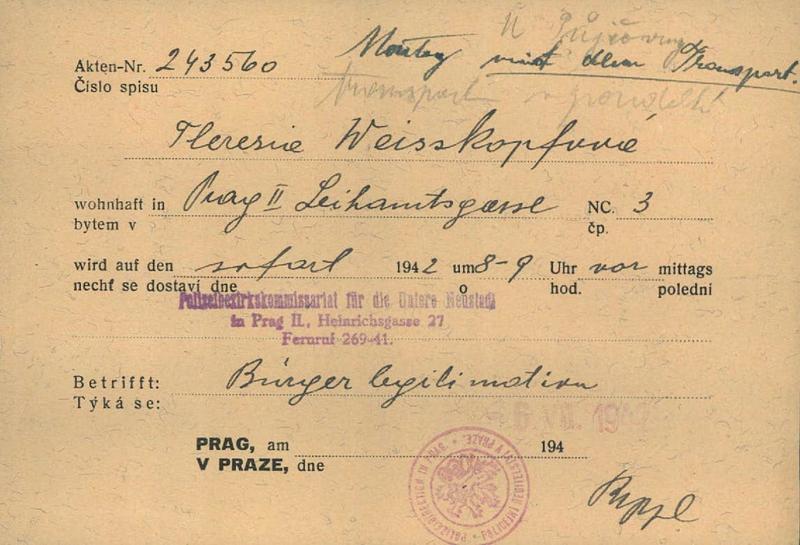 Akten-Nr. 243560
Číslo spisu
Montag mit dem Transport.
Theresie Weisskopfová
wohnhaft in Prag II Leihamtsgasse NC. 3
bytem v čp.
wird auf den sofort 1942 um 8-9 Uhr vor mittags
nechť se dostaví dne o hod. polední
Polizeibezirkskommissariat für die Untere Neustadt
in Prag II., Heinrichsgasse 27
Fernruf 269-41.
Betrifft: Bürgerlegitimation
Týká se:
6. VII. 1942
PRAG, am 194
V PRAZE, dne